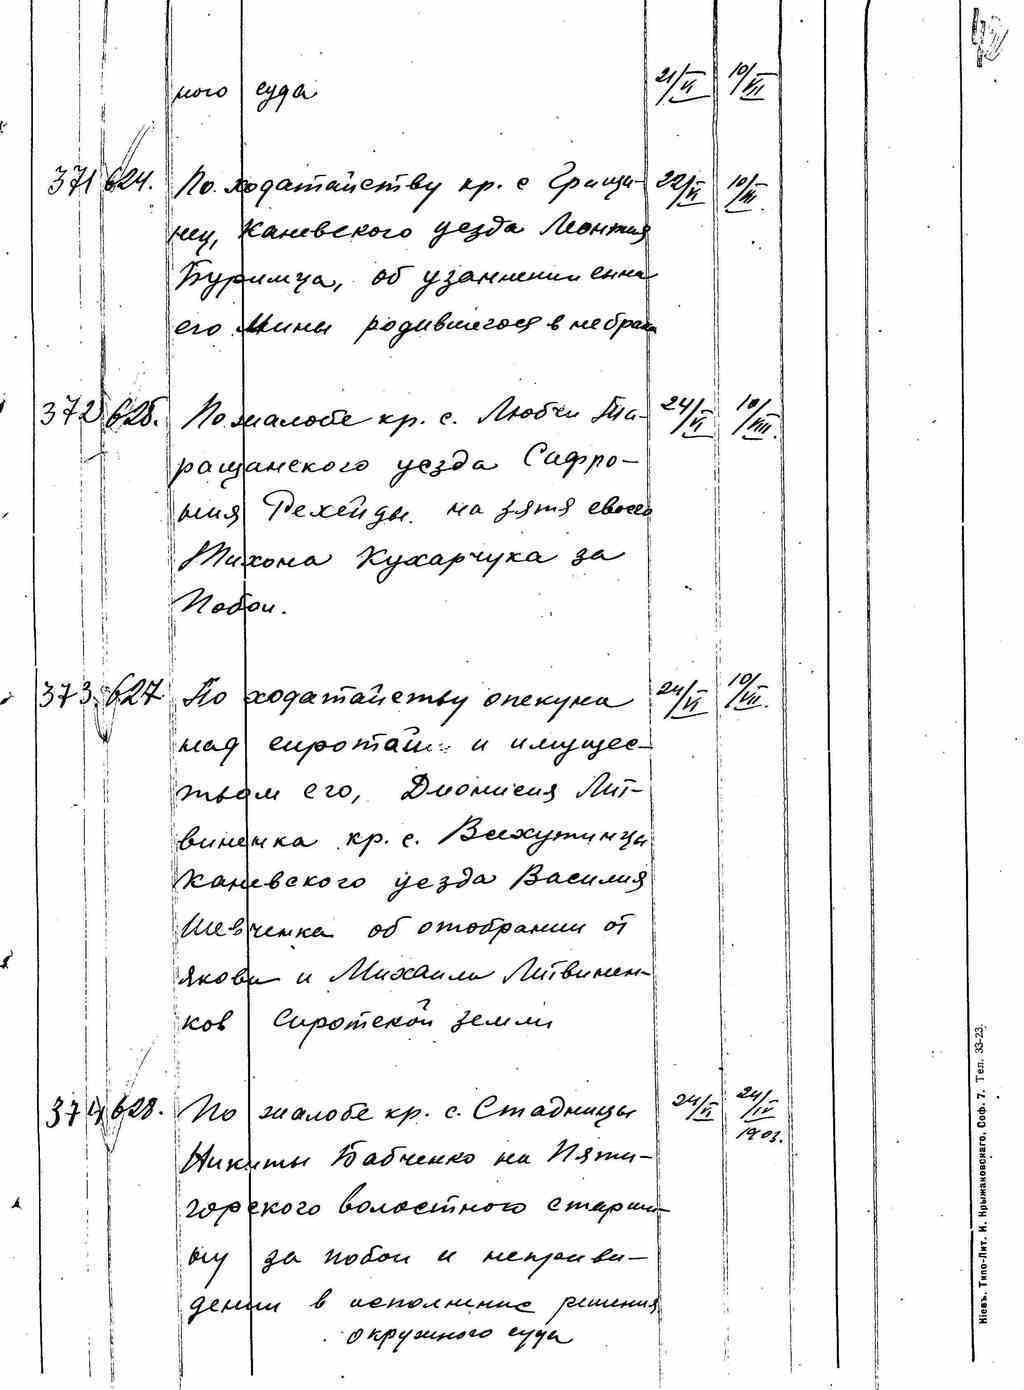 ного суда 21/VI 10/VII
371 624. По ходатайству кр. с Грищи- 22/VI 10/VII.
нец, Каневского уезда Леонтия
Буримча, об узаконении сына
его Мины родившегося в не брака
372 625. По жалобе кр. с. Любчи Та- 24/VI 10/VII.
ращанского уезда Сафро-
ния Рехейды. на зятя своего
Тихона Кухарчука за
Побои.
373 627 По ходатайству опекуна 24/VI 10/VII.
над сиротами и имущес-
твом его, Дионисия Лит-
виненка кр. с. Вихутинцы
Каневского уезда Василия
Шевченка об отобрании от
Якова и Михаила Литвинен-
ков Сиротской земли
374 628. По жалобе кр. с. Стадницы 24/VI 24/IV
1903.
Никиты Бабченко на Пяти-
горского волостного старши-
ну за побои и неприви-
дении в исполнение решения
окружного суда
Кіевъ. Типо-Лит. И. Крыжановскаго, Соф. 7. Тел. 33-23.